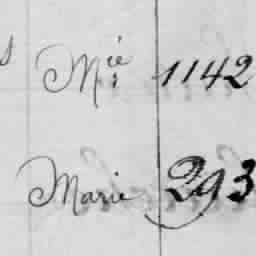 s Mié 1142
Marie 293